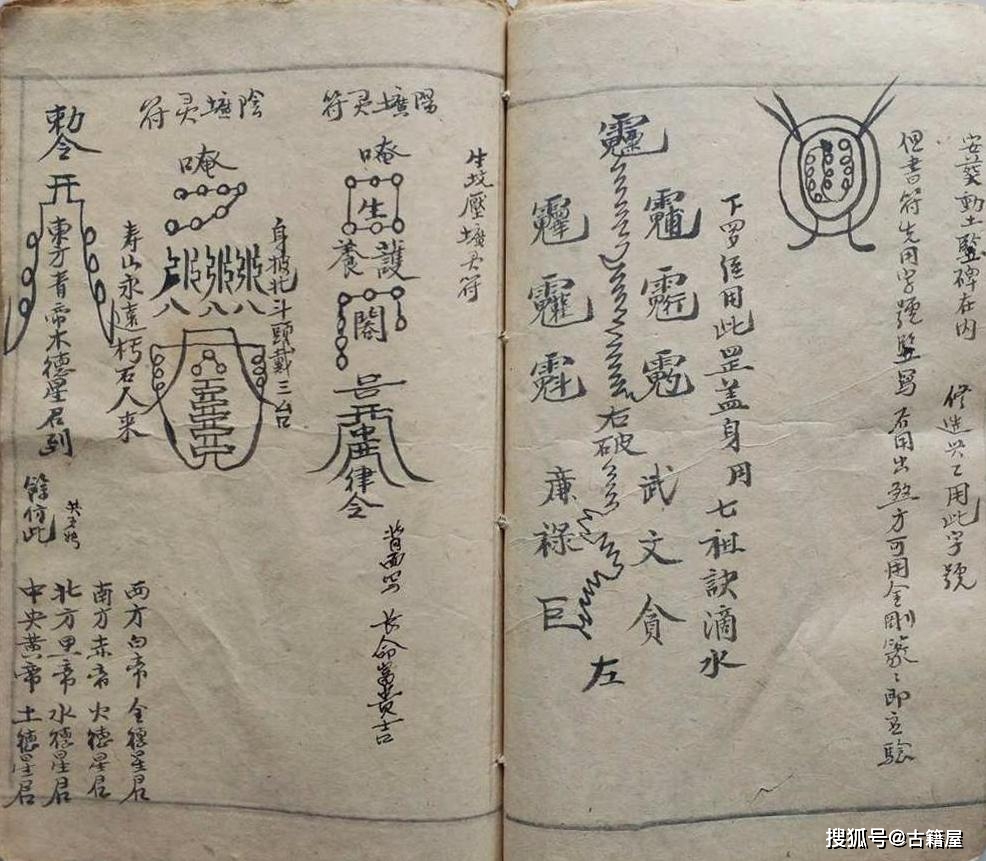 安葵動土竪碑在內 修造兴工用此字號
但書符先用字號竪寫 若用出煞方可用金剛篆〻即立驗
下罗侯用此罡盖身用七祖訣滴水
武文貪
右破
左
廉禄巨
生坟壓壙灵符
陽壙灵符
唵
生
護養
閣
律令
背面寫 長命富貴吉
陰壙灵符
唵
身披北斗頭戴三台
八八八
寿山永遠朽石人來
勅令
東方青帝木德星君到
餘仿此
西方白帝 金德星君
南方赤帝 火德星君
北方黑帝 水德星君
中央黄帝 土德星君
搜狐号@古籍屋